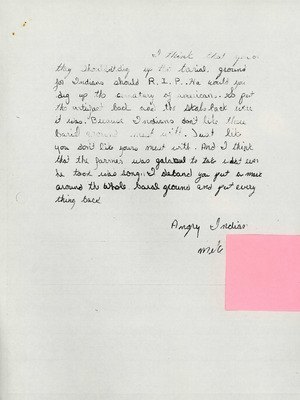 I think that
they shouldn't dig up the burial ground
for Indians should R.I.P. He would you
dig up the cematary of americans. so put
the back and the skels back were
it was. Because Indians don't like there
burial ground mest with. Just like
you don't like yours mest with. And I think
that the farmer was to
he took was song. I demand you put a
around the whole burial ground and put every
thing back
Angry Indian